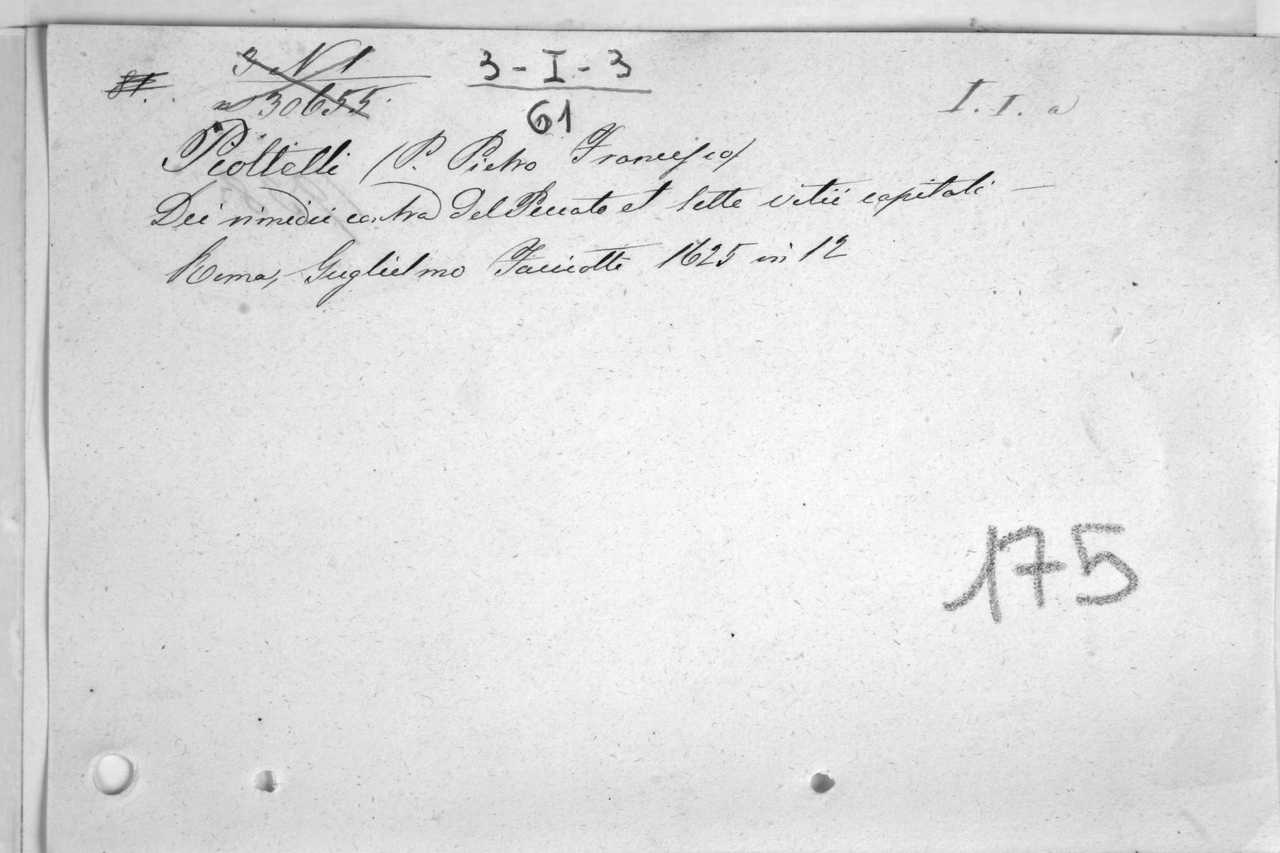 3 N 1
n 30655
3-I-3
61
I. I. a
Piottelli (P. Pietro Francesco)
Dei rimedii contra del Peccato et sette vitii capitali —
Roma, Guglielmo Facciotti 1625 in 12
175